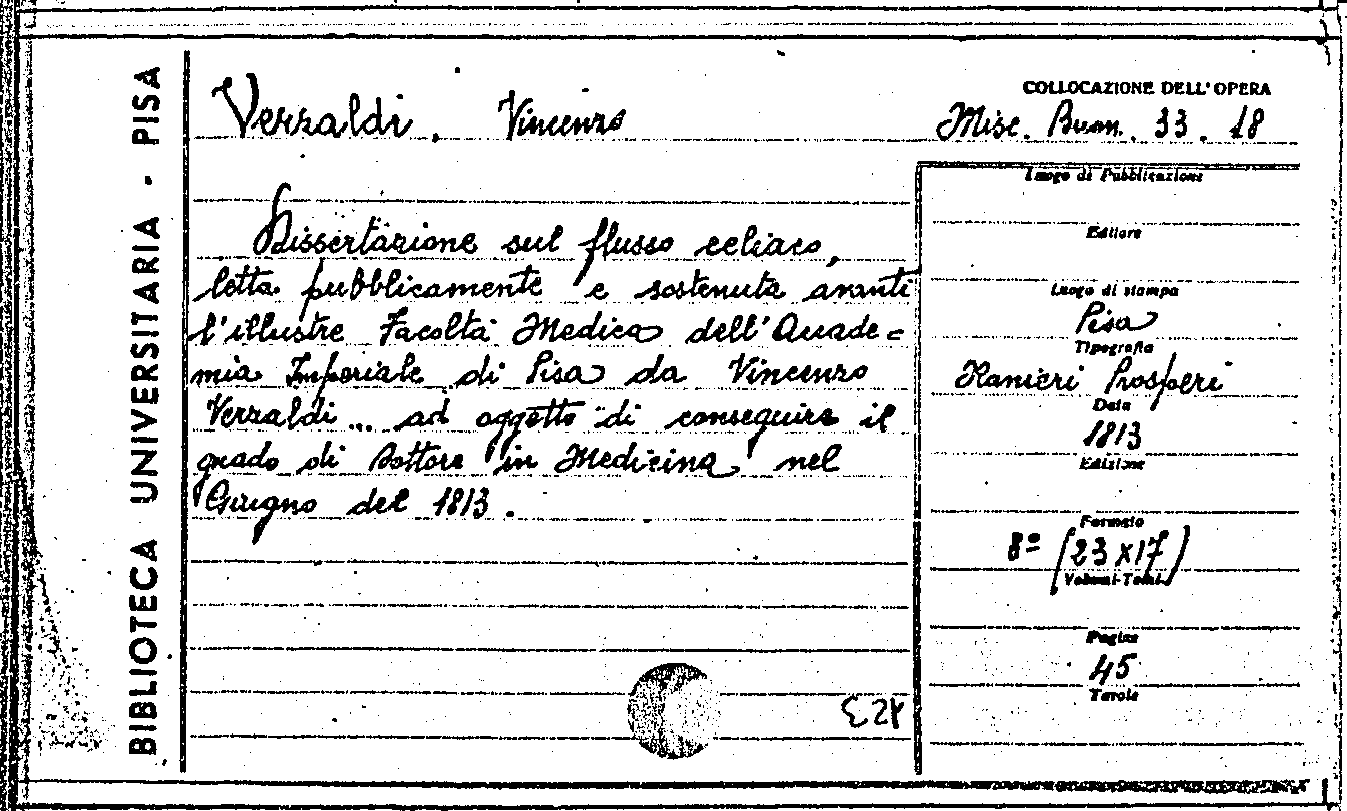 BIBLIOTECA UNIVERSITARIA - PISA
Verzaldi, Vincenzo
COLLOCAZIONE DELL'OPERA
Misc. Buon. 33. 18
Dissertazione sul flusso celiaco,
letta pubblicamente e sostenuta avanti
l'illustre Facoltà Medica dell'Accade=
mia Imperiale di Pisa da Vincenzo
Verzaldi ... ad oggetto di conseguire il
grado di Dottore in Medicina nel
Giugno del 1813.
Luogo di Pubblicazione
Editore
Luogo di stampa
Pisa
Tipografia
Ranieri Prosperi
Data
1813
Edizione
Formato
8º (23x17)
Volumi-Tomi
Pagine
45
Tavole